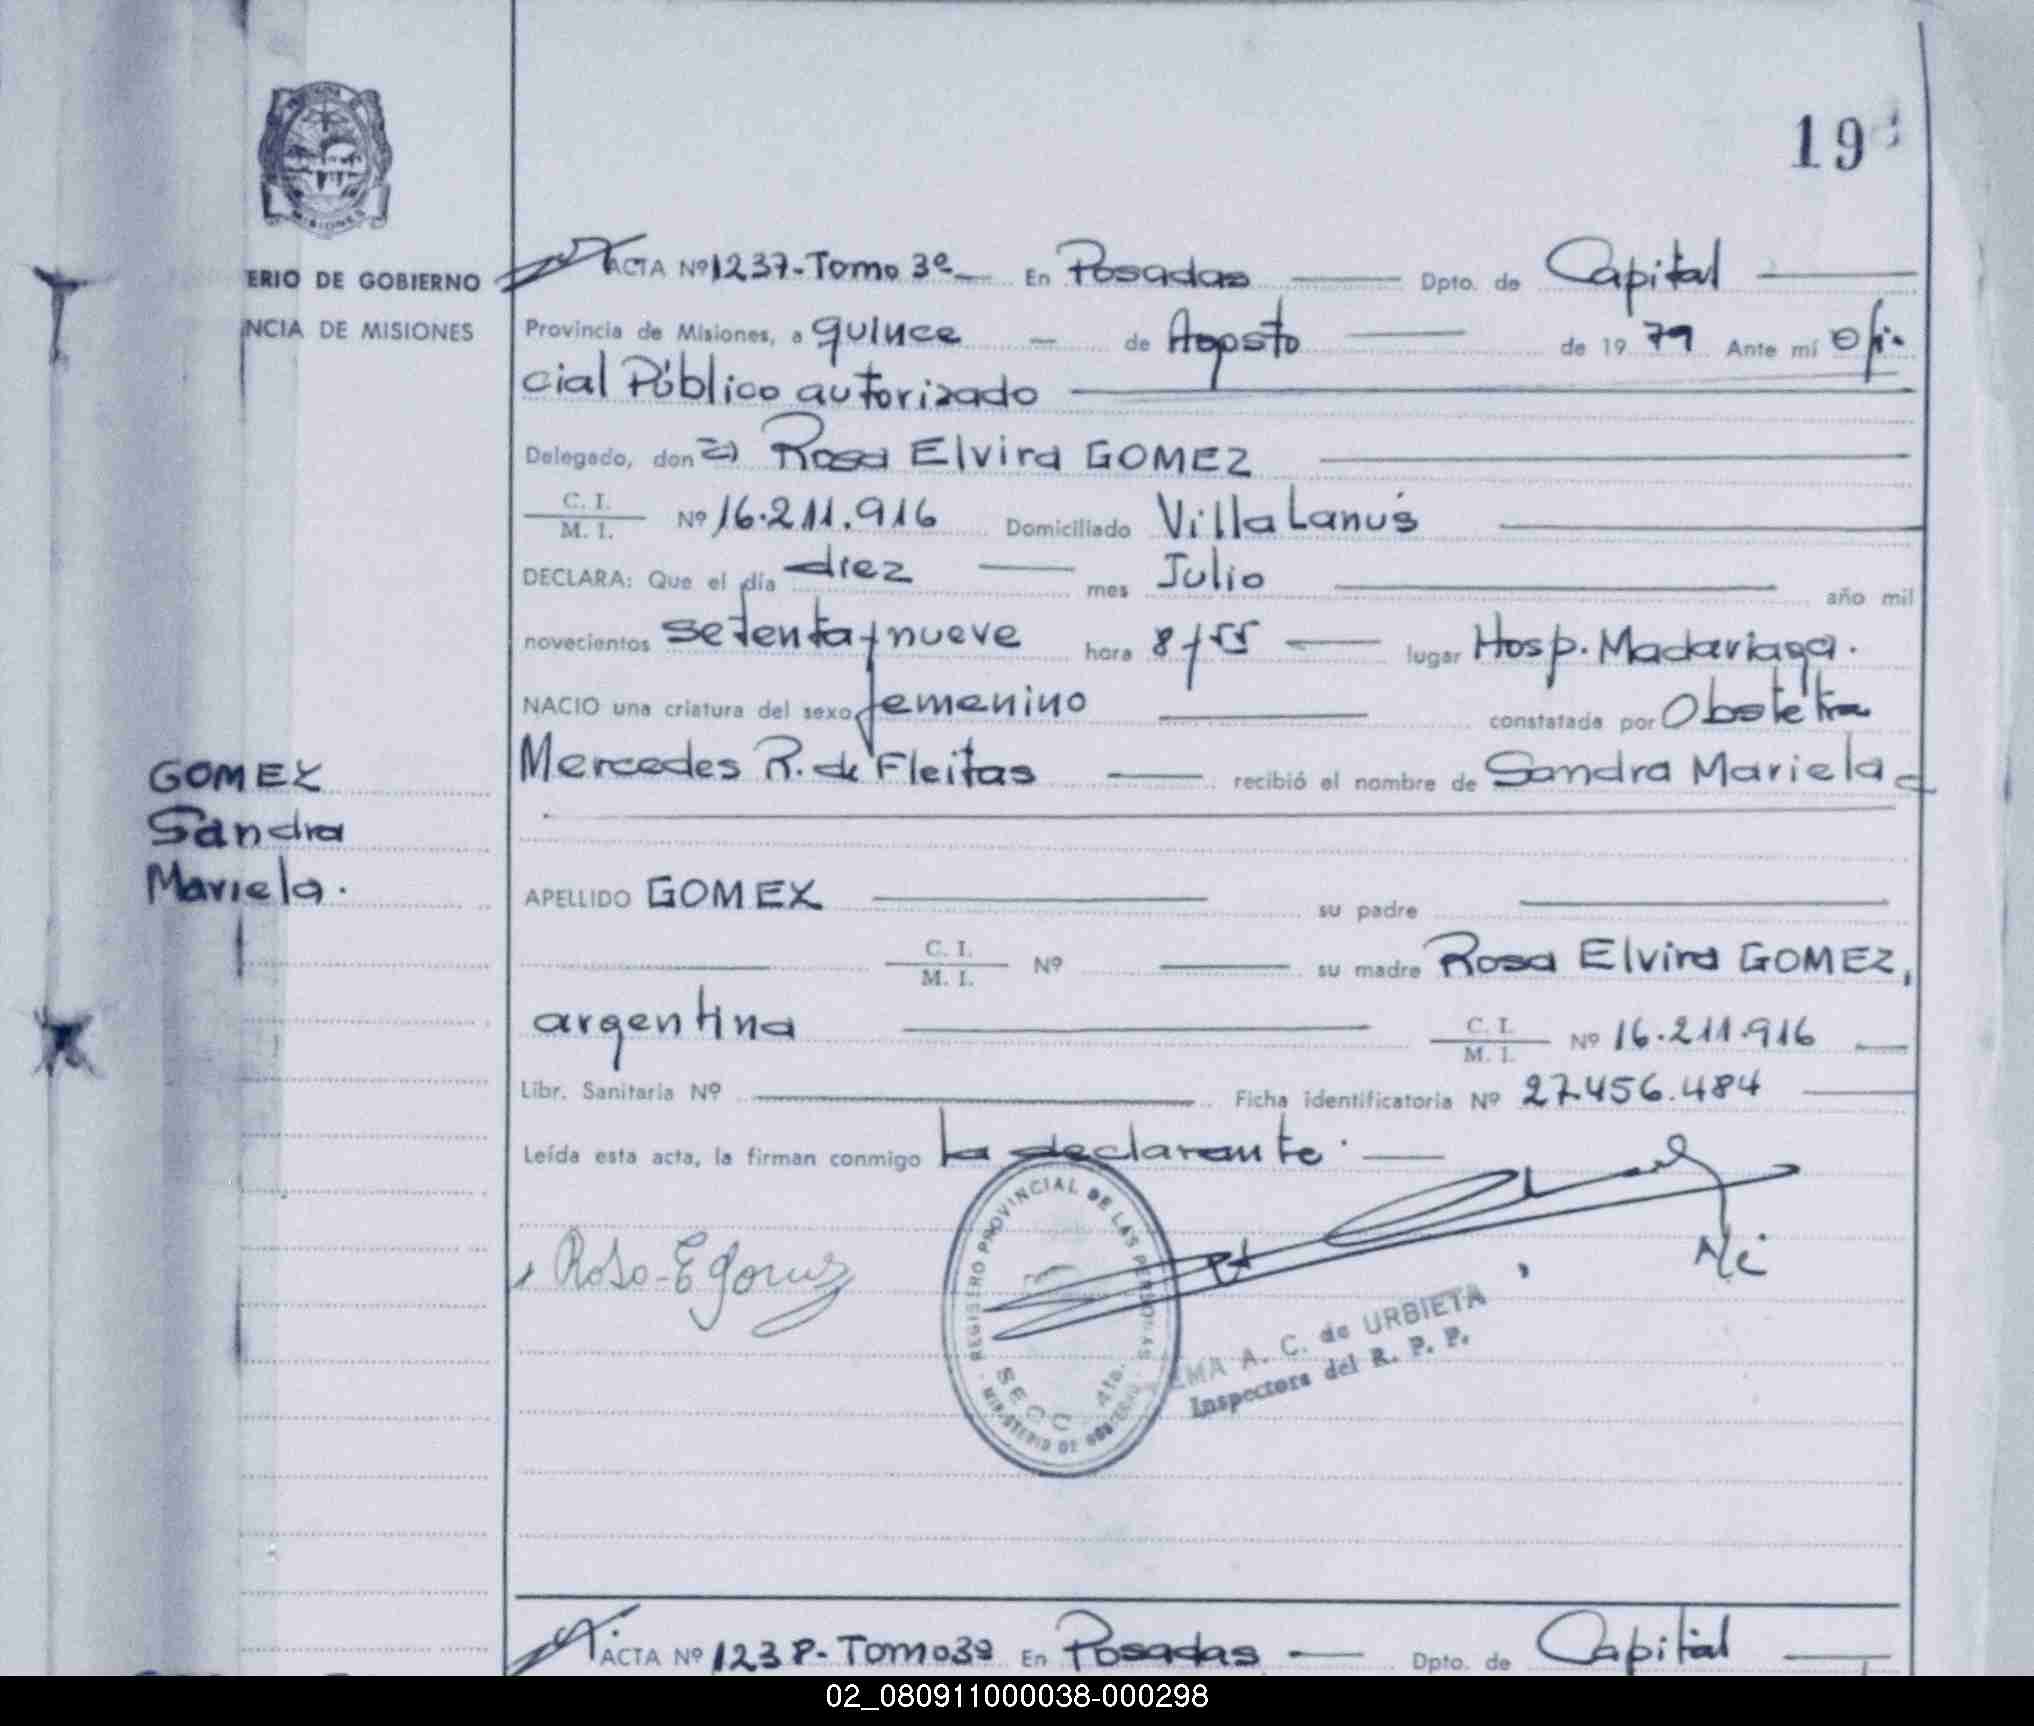 19
MISIONES
ERIO DE GOBIERNO
NCIA DE MISIONES
ACTA Nº 1237-Tomo 3º En Posadas Dpto. de Capital
Provincia de Misiones, a quince de Agosto de 19 79 Ante mí Ofi-
cial Público autorizado
Delegado, don a) Rosa Elvira GOMEZ
C. I.
M. I. Nº 16.211.916 Domiciliado Villa Lanús
DECLARA: Que el día diez mes Julio año mil
novecientos setenta y nueve hora 8 y 55 lugar Hosp. Madariaga.
NACIO una criatura del sexo femenino constatada por Obstetra
Mercedes R. de Fleitas recibió el nombre de Sandra Mariela
GOMEZ
Sandra
Mariela.
APELLIDO GOMEZ su padre
C. I.
M. I. Nº su madre Rosa Elvira GOMEZ,
argentina C. I.
M. I. Nº 16.211.916
Libr. Sanitaria Nº Ficha identificatoria Nº 27.456.484
Leída esta acta, la firman conmigo la declarante.
Rosa E Gomez
REGISTRO PROVINCIAL DE LAS PERSONAS
SECC 4ta.
MINISTERIO DE GOBIERNO
EMA A. C. de URBIETA
Inspectora del R. P. P.
ACTA Nº 1238-Tomo 3º En Posadas Dpto. de Capital
02_080911000038-000298